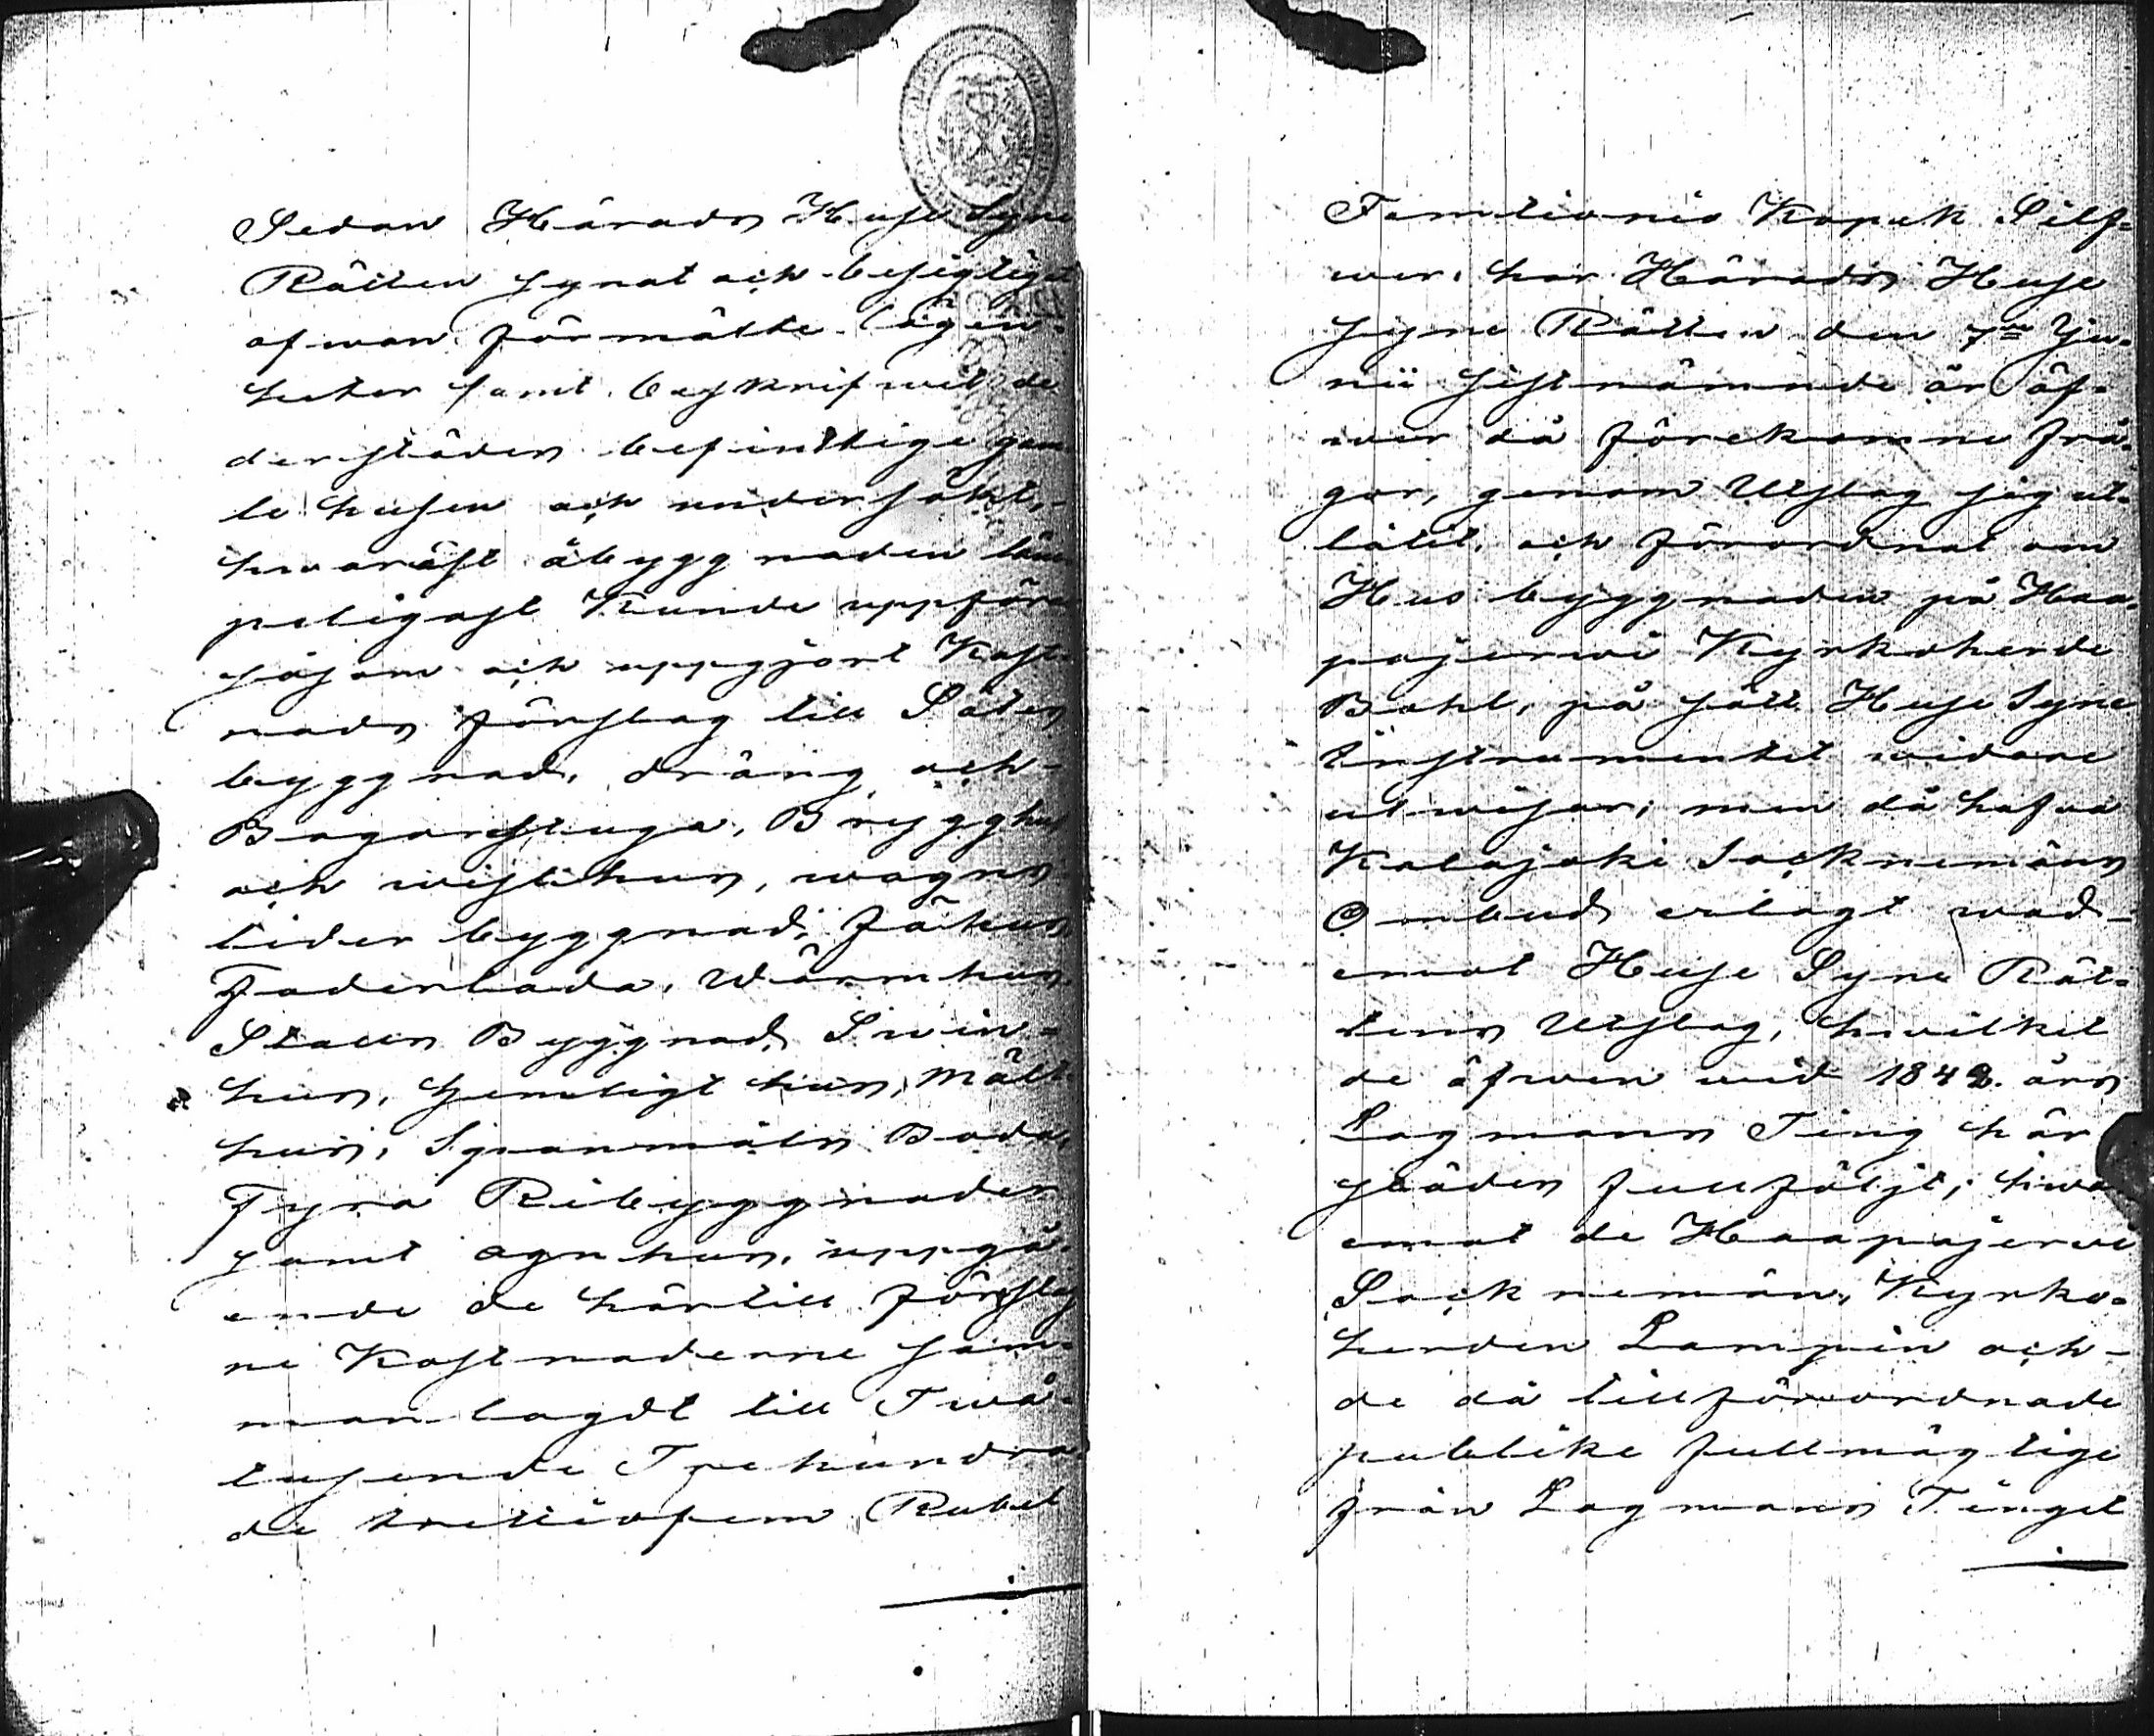 Sedan Härads Huse Syne
Rätten synat och besigtigat
ofwan förmälte lägen-
heter samt beskrifwit de
derstädes befintlige gam
le husen och undersökt,
hwaräst åbyggnaden läm
peligast kunde uppföras
såsom och uppgjort Kost-
nads förslag till Sätes
byggnad, dräng och
Bagarestuga, Brygghus
och wisthus, wagns
lider byggnad, Fähus
Foderlada, Wärmhus
Stalls Byggnad, Swin-
hus, hemligt hus, Mält
hus, Spanmåls Boda,
Fyra Ribyggnader
samt agnhus, uppgå-
ende de härtill förslag
ne Kostnaderne sam-
manlagdt till Twå-
tusende Trehundra
de trettiofem Rubel
Femtionio Kopek Silf-
wer, har Härads Huse
Syne Rätten den 7de Ju-
nii sistnämnde år öf-
wer då förekomne frå-
gor, genom Utslag sig ut-
låtit och förordnat om
Hus byggnaden på Haa-
pajerwi Kyrkoherde
Bohl, på sätt Huse Syne
Instrumentet widare
utwisar; men då hafwa
Kalajoki Socknemäns
Ombud erlagt wad
emot Huse Syne Rät-
tens Utslag, hwilket
de äfwen wid 1842 års
Lagmans Ting här
städes fullföljt; hwar
emot de Haapajerwi
Socknemän, Kyrko-
herden Lampén och
de då tillförordnade
publike fullmägtige
från Lagmans Tinget